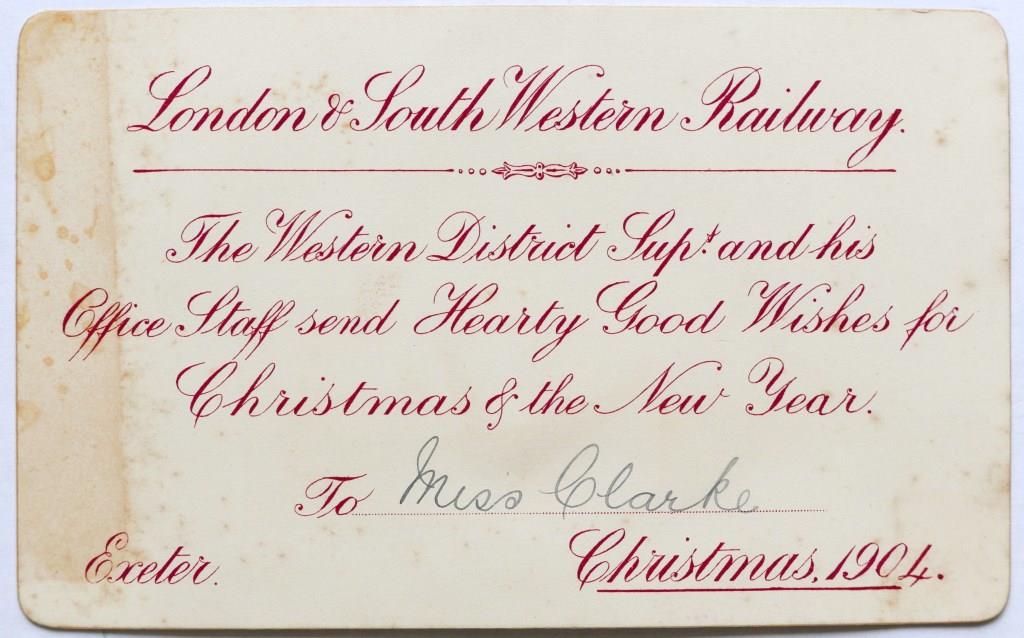 London & South Western Railway.
The Western District Supt. and his
Office Staff send Hearty Good Wishes for
Christmas & the New Year.
To Miss Clarke
Exeter. Christmas, 1904.